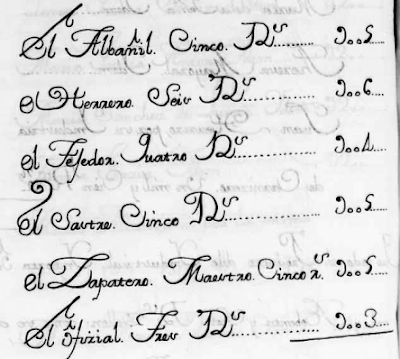 El Albañil. Cinco. Rs......... d..5
el Herrero. Seis Rs............ d..6
el Tejedor. Quatro Rs............ d..4
el Sastre. Cinco Rs............ d..5
el Zapatero. Maestro. Cinco rs. d..5
El ofizial. Tres Rs............ d..3